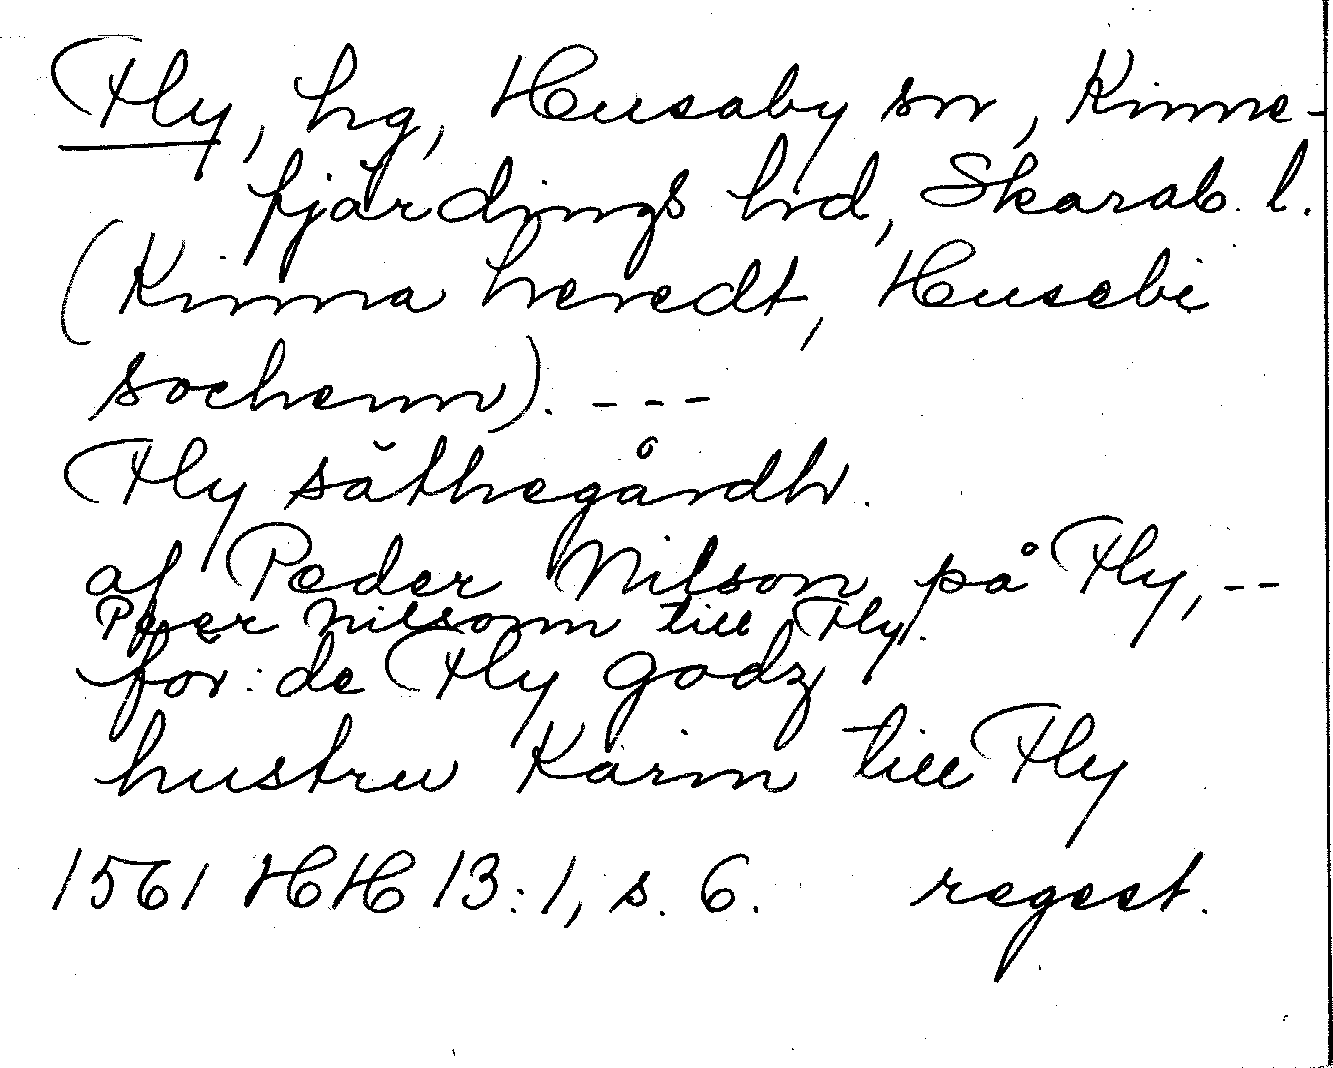 Fly, hg, Husaby sn, Kinne-
fjärdings hd, Skarab. l.
(Kinna heredt, Husebi
sochenn). - - -
Fly säthegårdh.
af Peder Nilson på Fly, - -
Peer Nilsonn till Fly.
för: de Fly godz
hustru Karin till Fly
1561 HH 13:1, s. 6. regest.